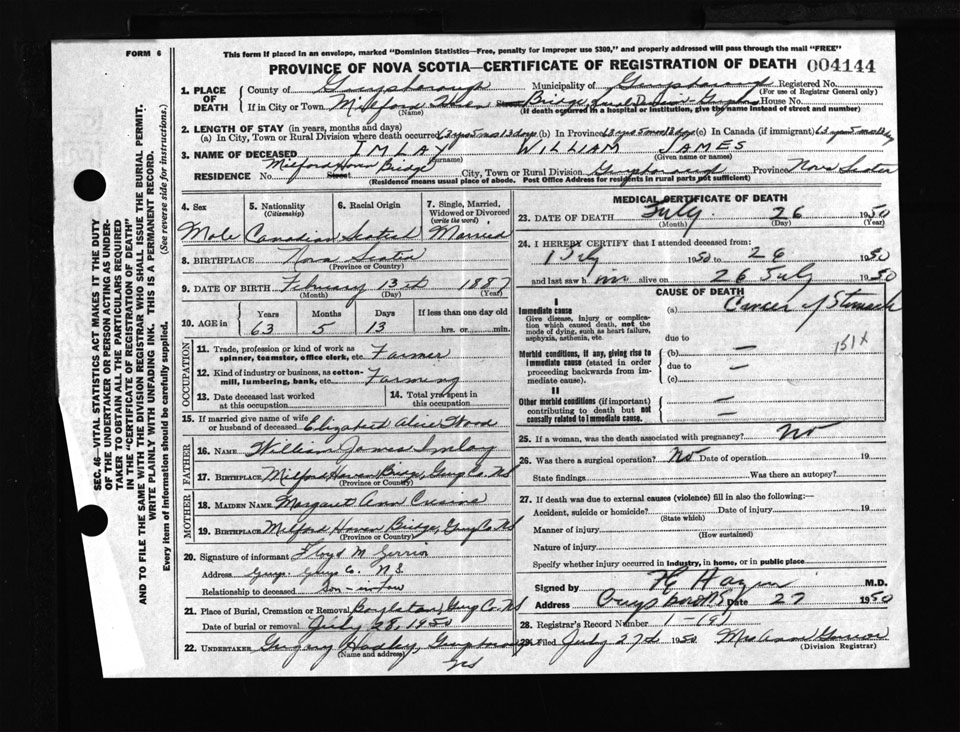 FORM 6
This form if placed in an envelope, marked "Dominion Statistics—Free, penalty for improper use $300," and properly addressed will pass through the mail "FREE"
PROVINCE OF NOVA SCOTIA—CERTIFICATE OF REGISTRATION OF DEATH 004144
1. PLACE OF DEATH
County of Guysborough Municipality of Guysborough Registered No.
(For use of Registrar General only)
If in City or Town Milford Haven Street Bridge, House No.
(Name) (If death occurred in a hospital or institution, give the name instead of street and number)
2. LENGTH OF STAY (in years, months and days)
(a) In City, Town or Rural Division where death occurred 63 ays 5 mos 13 days (b) In Province 63 ays 5 mos 13 days (c) In Canada (if immigrant) 63 ays 5 mos 13 days
3. NAME OF DECEASED IMLAY WILLIAM JAMES
(Surname) (Given name or names)
RESIDENCE No. Milford Haven Bridge Street City, Town or Rural Division Guysborough Province Nova Scotia
(Residence means usual place of abode. Post Office Address for residents in rural parts not sufficient)
4. Sex 5. Nationality (Citizenship) 6. Racial Origin 7. Single, Married, Widowed or Divorced (write the word)
Male Canadian Scotish Married
8. BIRTHPLACE Nova Scotia
(Province or Country)
9. DATE OF BIRTH February 13th 1887
(Month) (Day) (Year)
10. AGE in Years Months Days If less than one day old
63 5 13 hrs. or min.
OCCUPATION
11. Trade, profession or kind of work as spinner, teamster, office clerk, etc. Farmer
12. Kind of industry or business, as cotton-mill, lumbering, bank, etc. Farming
13. Date deceased last worked at this occupation
14. Total yrs. spent in this occupation
15. If married give name of wife or husband of deceased Elizabeth Alice Wood
FATHER
16. NAME William James Imlay
17. BIRTHPLACE Milford Haven Bridge, Guys Co. NS
(Province or Country)
MOTHER
18. MAIDEN NAME Margaret Ann
19. BIRTHPLACE Milford Haven Bridge, Guys Co NS
(Province or Country)
20. Signature of informant Floyd M
Address Guys. Guys Co. N.S.
Relationship to deceased Son-in-law
21. Place of Burial, Cremation or Removal Boylston, Guys Co. NS
Date of burial or removal July 28, 1950
22. UNDERTAKER Gregory Hadley, Guysboro
(Name and address)
MEDICAL CERTIFICATE OF DEATH
23. DATE OF DEATH July 26 1950
(Month) (Day)
24. I HEREBY CERTIFY that I attended deceased from:
1 July 1950 to 26 1950
and last saw him alive on 26 July 1950
CAUSE OF DEATH
I
Immediate cause (a) Cancer of Stomach
Give disease, injury or complication which caused death, not the mode of dying, such as heart failure, asphyxia, asthenia, etc.
due to
151X
Morbid conditions, if any, giving rise to immediate cause (stated in order proceeding backwards from immediate cause).
(b) —
due to —
(c)
II
Other morbid conditions (if important) contributing to death but not causally related to immediate cause.
—
—
25. If a woman, was the death associated with pregnancy? No
26. Was there a surgical operation? No Date of operation 19
State findings Was there an autopsy?
27. If death was due to external causes (violence) fill in also the following:—
Accident, suicide or homicide? Date of injury 19
(State which)
Manner of injury
(How sustained)
Nature of injury
Specify whether injury occurred in industry, in home, or in public place
Signed by M.D.
Address Guysboro NS Date 27 1950
28. Registrar's Record Number
29. Filed July 27th 1950 Mrs
(Division Registrar)
SEC. 46—VITAL STATISTICS ACT MAKES IT THE DUTY
OF THE UNDERTAKER OR PERSON ACTING AS UNDER-
TAKER TO OBTAIN ALL THE PARTICULARS REQUIRED
IN THE "CERTIFICATE OF REGISTRATION OF DEATH"
AND TO FILE THE SAME WITH THE DIVISION REGISTRAR WHO SHALL ISSUE THE BURIAL PERMIT.
WRITE PLAINLY WITH UNFADING INK. THIS IS A PERMANENT RECORD.
Every item of information should be carefully supplied. (See reverse side for instructions.)